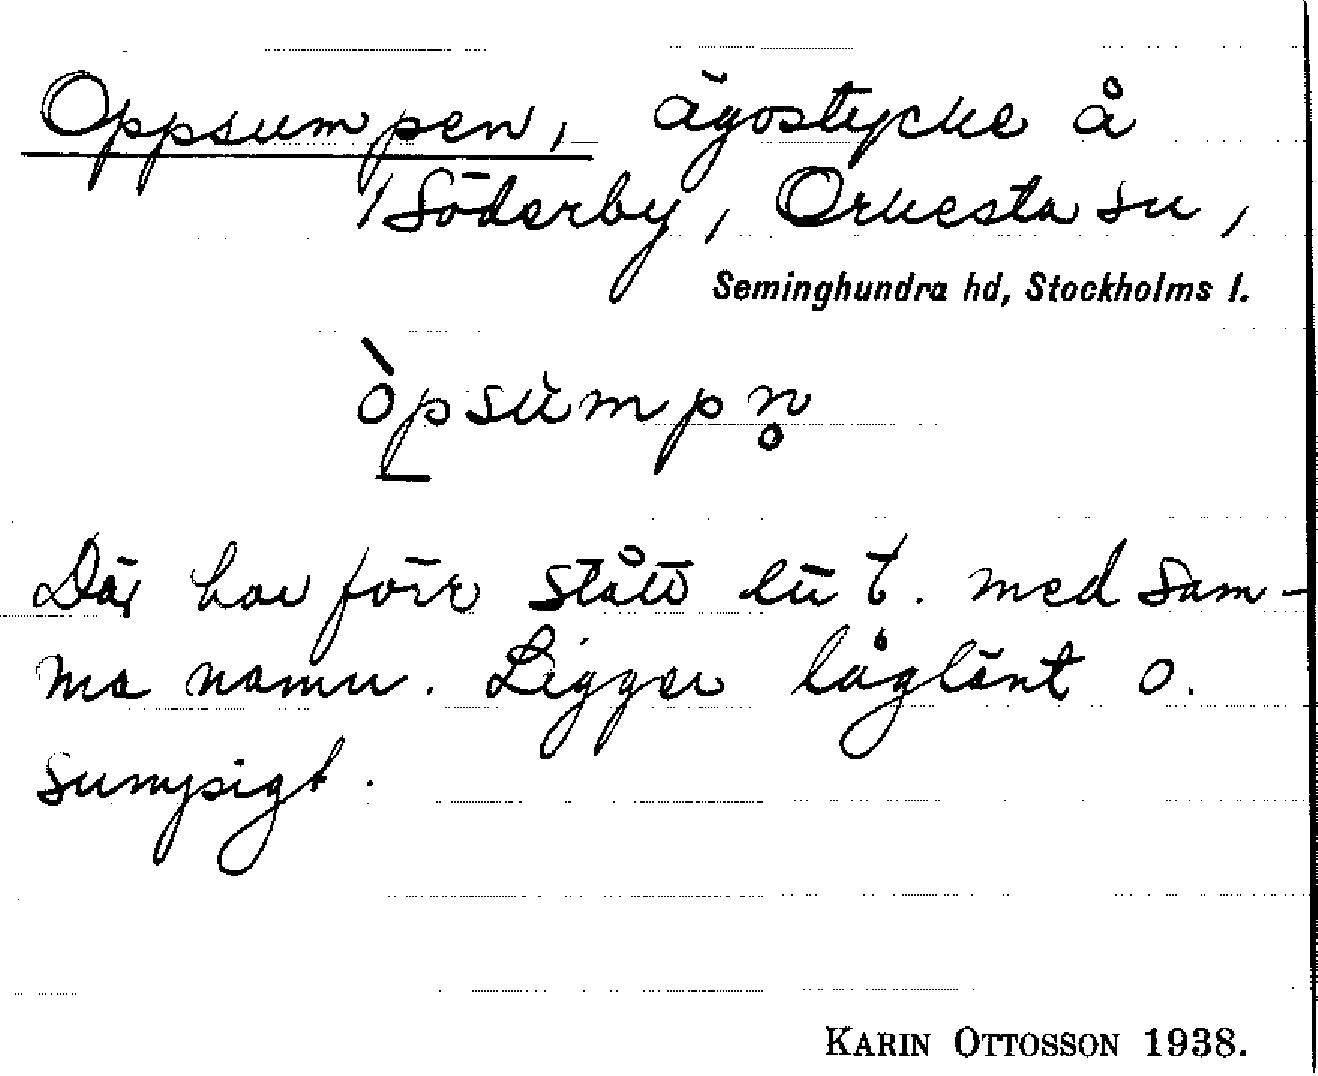 Oppsumpen, ägostycke å
Söderby, Orkesta sn,
Seminghundra hd, Stockholms l.
òpsùmpn̥
Där har förr stått ett t. med sam-
ma namn. Ligger låglänt o.
sumpigt.
KARIN OTTOSSON 1938.